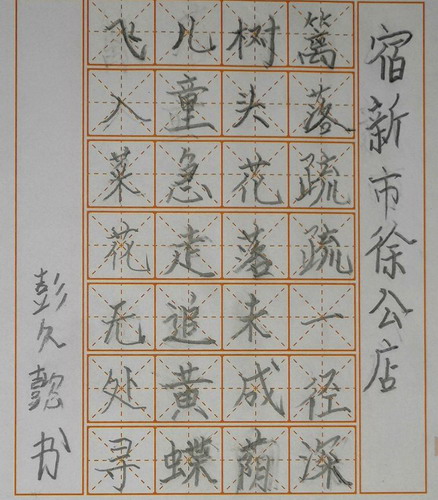 宿新市徐公店
篱落疏疏一径深
树头花落未成荫
儿童急走追黄蝶
飞入菜花无处寻
彭久懿书